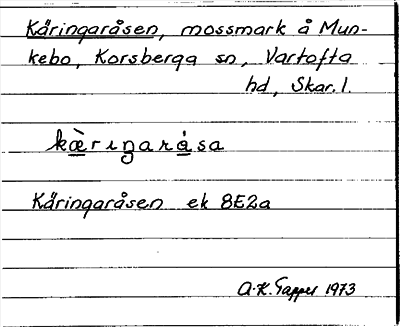 Käringaråsen, mossmark å Mun-
kebo, Korsberga sn, Vartofta
hd, Skar. l.
kæ̀riŋaråsa
Käringaråsen ek 8E2a
A-K. Tapper 1973